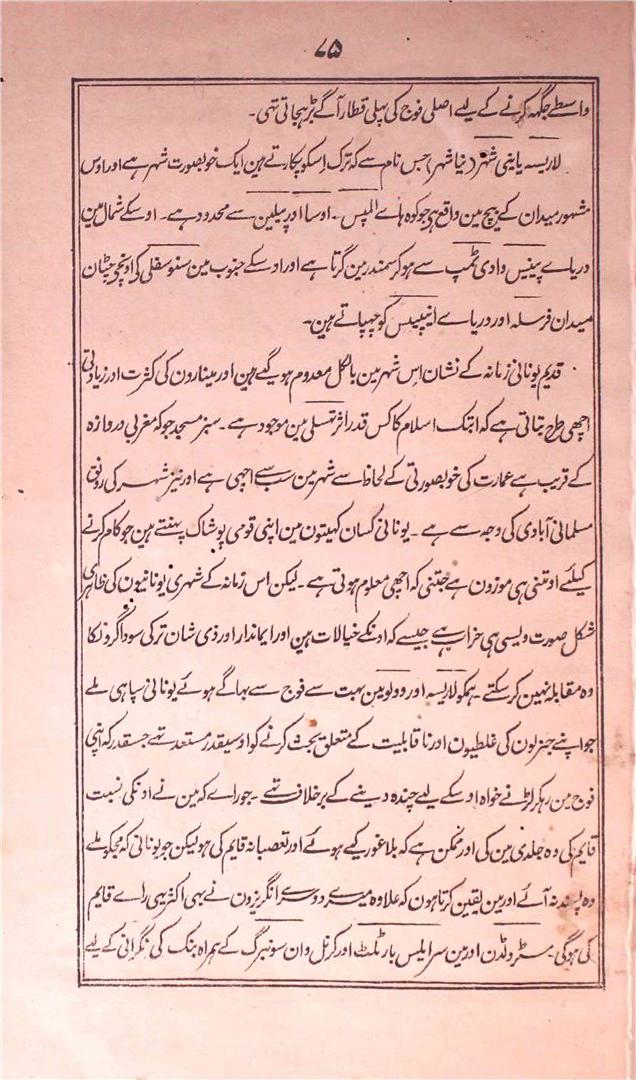 ٧٥
واسطے جگہہ کرنے کے لیے اصلی فوج کی پہلی قطار آگے بڑہجاتی تہی۔
لاریسہ یا ینی شہر (نیا شہر) جس نام سے کہ ترک اسکو پکارتے ہین ایک خوبصورت شہر ہے اور اوس
مشہور میدان کے بیچ مین واقع ہی جو کوہ ہاے المپس۔ اوسا اور پیلین سے محدود ہے۔ اوسکے شمال مین
دریاے پینیس وادی ٹمپ سے ہوکر سمندر مین گرتا ہے اور اوسکے جنوب مین سنوسفلی کی اونچی چٹان
میدان فرسلہ اور دریاے اینپیس کو چہپاتے ہین۔
قدیم یونانی زمانہ کے نشان اس شہر مین بالکل معدوم ہوگیے ہین اور مینارون کی کثرت اور زیادتی
اچھی طرح بتاتی ہے کہ ابتک اسلام کا کس قدر اثر تہسلی مین موجود ہے۔ سبز مسجد جو کہ مغربی دروازہ
کے قریب ہے عمارت کی خوبصورتی کے لحاظ سے شہر مین سب سے اچہی ہے اور نیز شہر کی رونق
مسلمانی آبادی کی وجہ سے ہے۔ یونانی کسان کہیتون مین اپنی قومی پوشاک پہنتے ہین جو کام کرنے
کیلئے اوتنی ہی موزون ہے جتنی کہ اچھی معلوم ہوتی ہے۔ لیکن اس زمانہ کے شہری یونانیون کی ظاہری
شکل صورت ویسی ہی خراب ہے جیسے کہ اونکے خیالات ہین اور ایماندار اور ذی شان ترکی سوداگرونکا
وہ مقابلہ نہین کرسکتے۔ ہمکو لاریسہ اور وولو مین بہت سے فوج سے بہاگے ہوئے یونانی سپاہی ملے
جو اپنے جنرلون کی غلطیون اور ناقابلیت کے متعلق بحث کرنے کو اوسیقدر مستعد تہے جسقدر کہ اپنی
فوج مین رہکر لڑنے خواہ اوسکے لیے چندہ دینے کے برخلاف تہے۔ جو راے کہ مین نے اونکی نسبت
قایم کی وہ جلدی مین کی اور ممکن ہے کہ بلاغور کیے ہوئے اور تعصبانہ قایم کی ہو لیکن جو یونانی کہ مجکو ملے
وہ پسند نہ آئے اور مین یقین کرتا ہون کہ علاوہ میرے دوسرے انگریزون نے بہی اکثر یہی راے قایم
کی ہوگی۔ مسٹر وٹلڈن اور مین سر ایلیس بارٹلٹ اور کرنل وان سونبرگ کے ہمراہ بنک کی نگرانی کے لیے